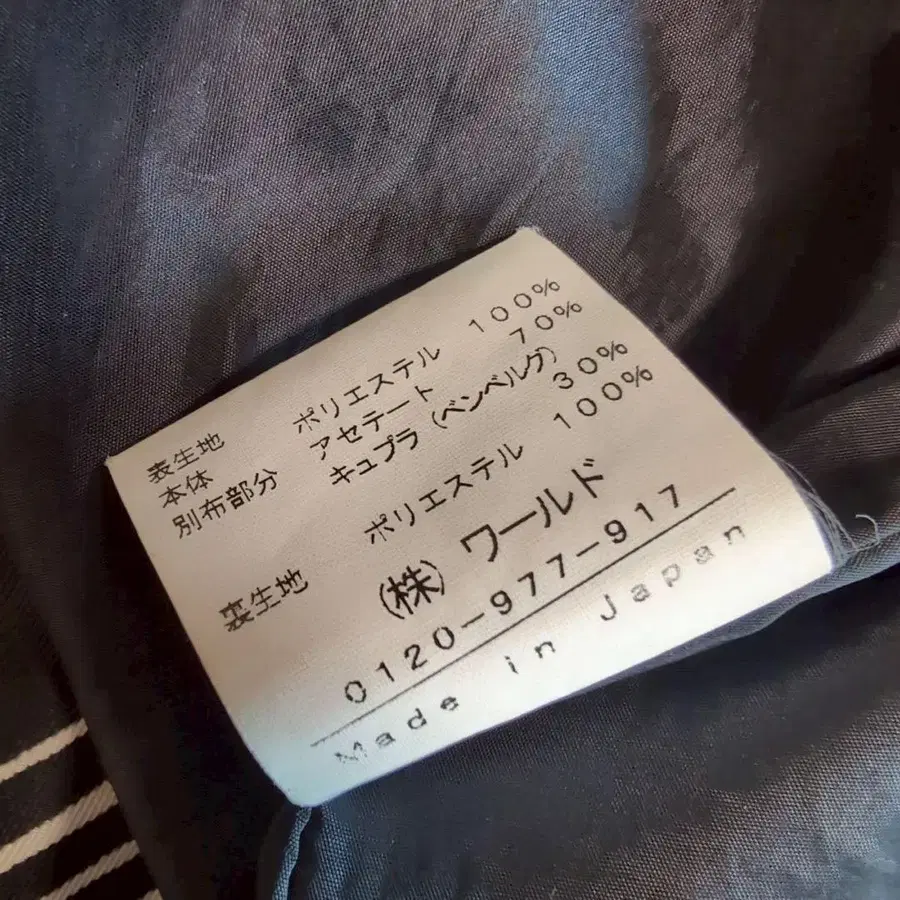 表生地
本体 ポリエステル 100%
別布部分 アセテート 70%
キュプラ (ベンベルグ) 30%
裏生地 ポリエステル 100%
(株) ワールド
0120-977-917
Made in Japan